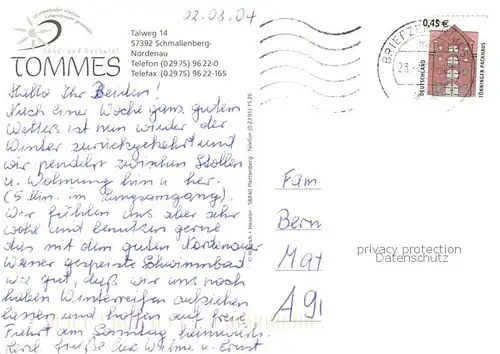 02.03.04
TOMMES
Talweg 14
57392 Schmallenberg-
Nordenau
Telefon (0 29 75) 96 22-0
Telefax (0 29 75) 96 22-165
Hallo Ihr Beiden!
Nach einer Woche ganz gutem
Wetters ist nun wieder der
Winter zurückgekehrt und
wir pendeln zwischen Stollen
u. Wohnung hin u. her.
(5 Min. im
Wir fühlen uns aber sehr
wohl und benutzen gerne
dies mit dem guten Nordenauer
Wasser gespeiste Schwimmbad
wie gut, daß wir uns noch
haben Winterreifen aufziehen
lassen und hoffen auf freie
Fahrt am Samstag heimwärts.
Herzl. Grüße Eure u. Ernst
58840 Plettenberg Telefon (0 23 91) 15 26
BRIEFZE
0,45 €
DEUTSCHLAND
TÖNNINGER PACKHAUS
Fam
Bern
Mat
A91
privacy protection
Datenschutz